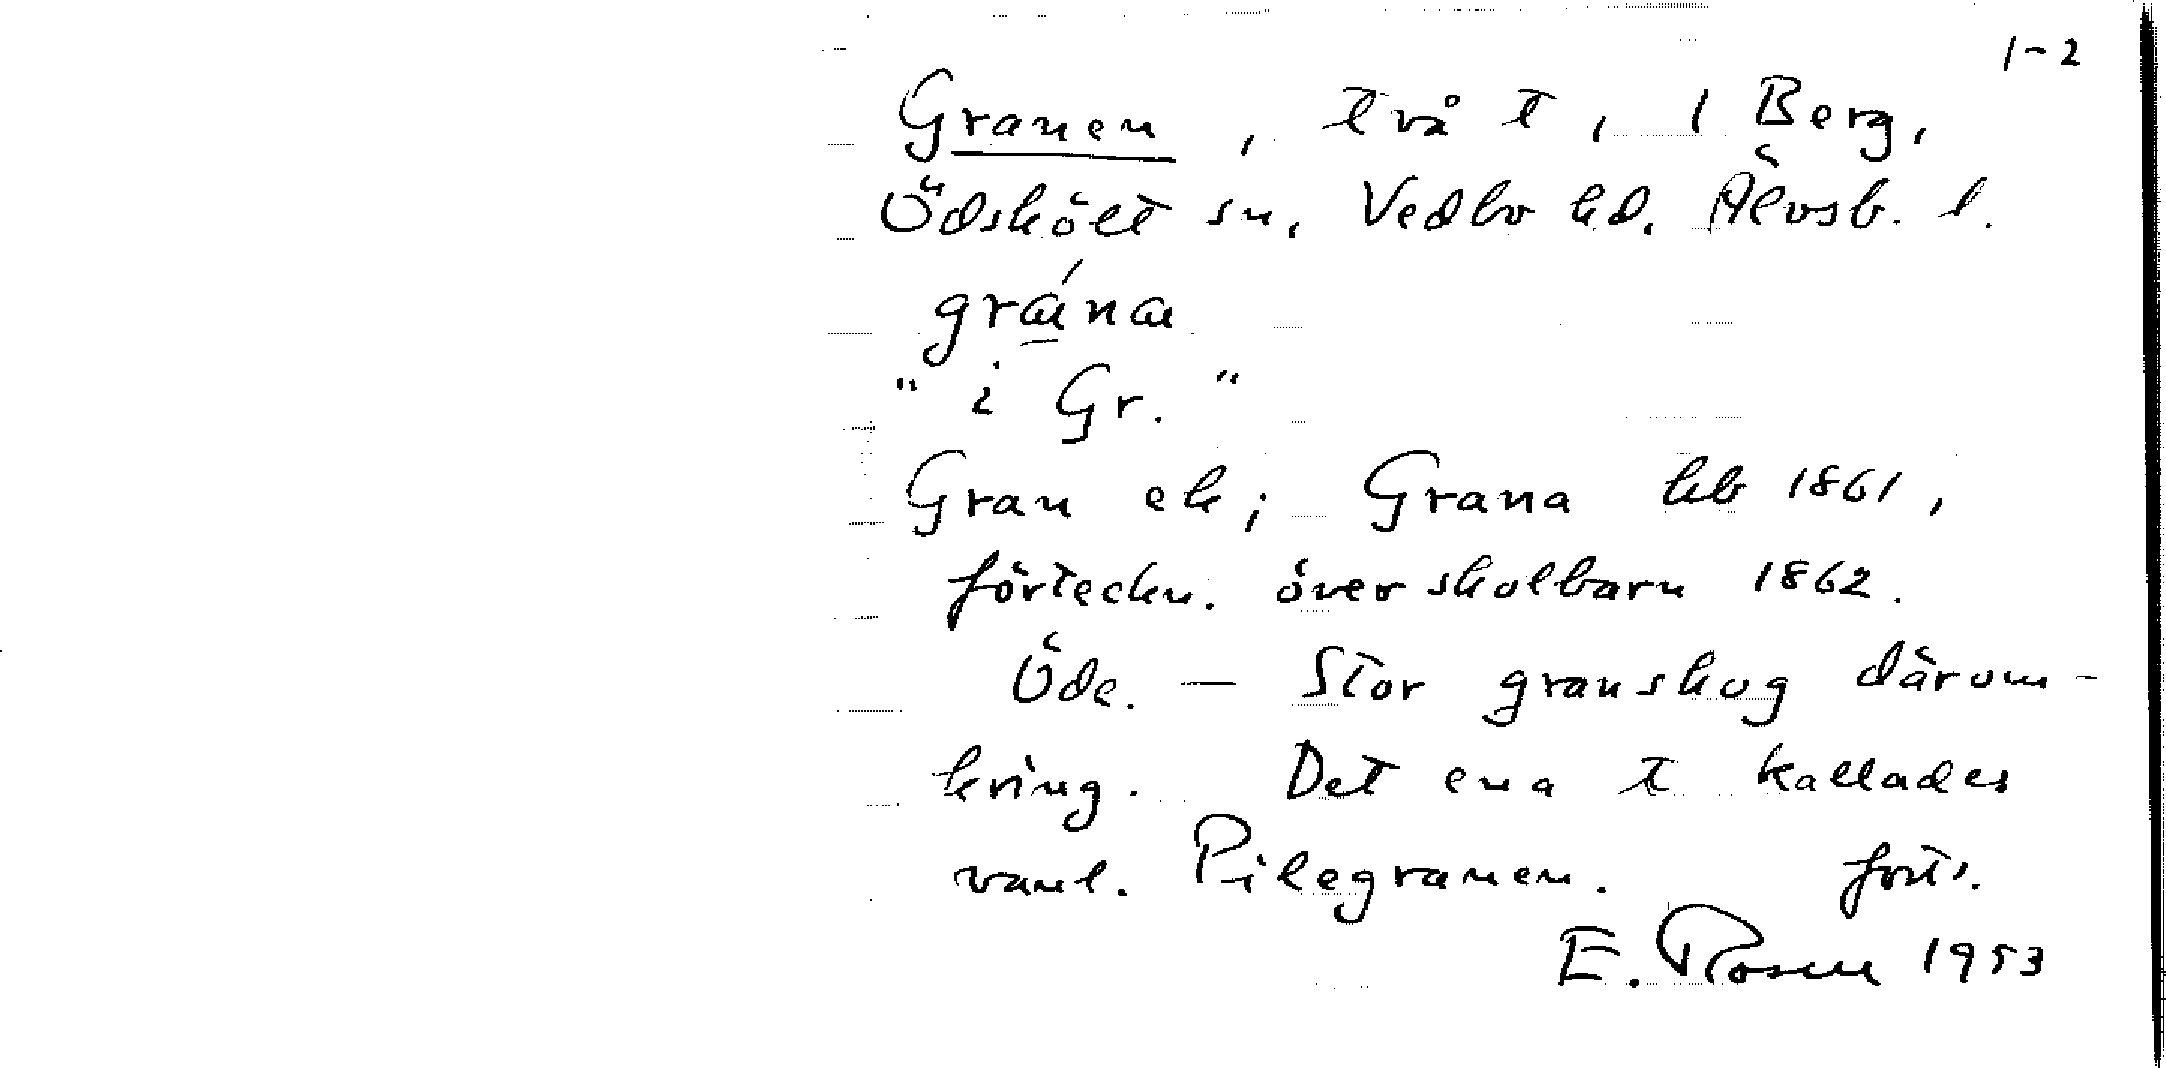 1-2
Granen, två t, 1 Berg,
Ödskölt sn, Vedbo hd. Älvsb. l.
gránа
" i Gr. "
Gran ek; Grana hb 1861,
förteckn. över skolbarn 1862.
Öde. — Stor granskog därom-
kring. Det ena t kallades
vanl. Pilegranen. forts.
E. Rosen 1953